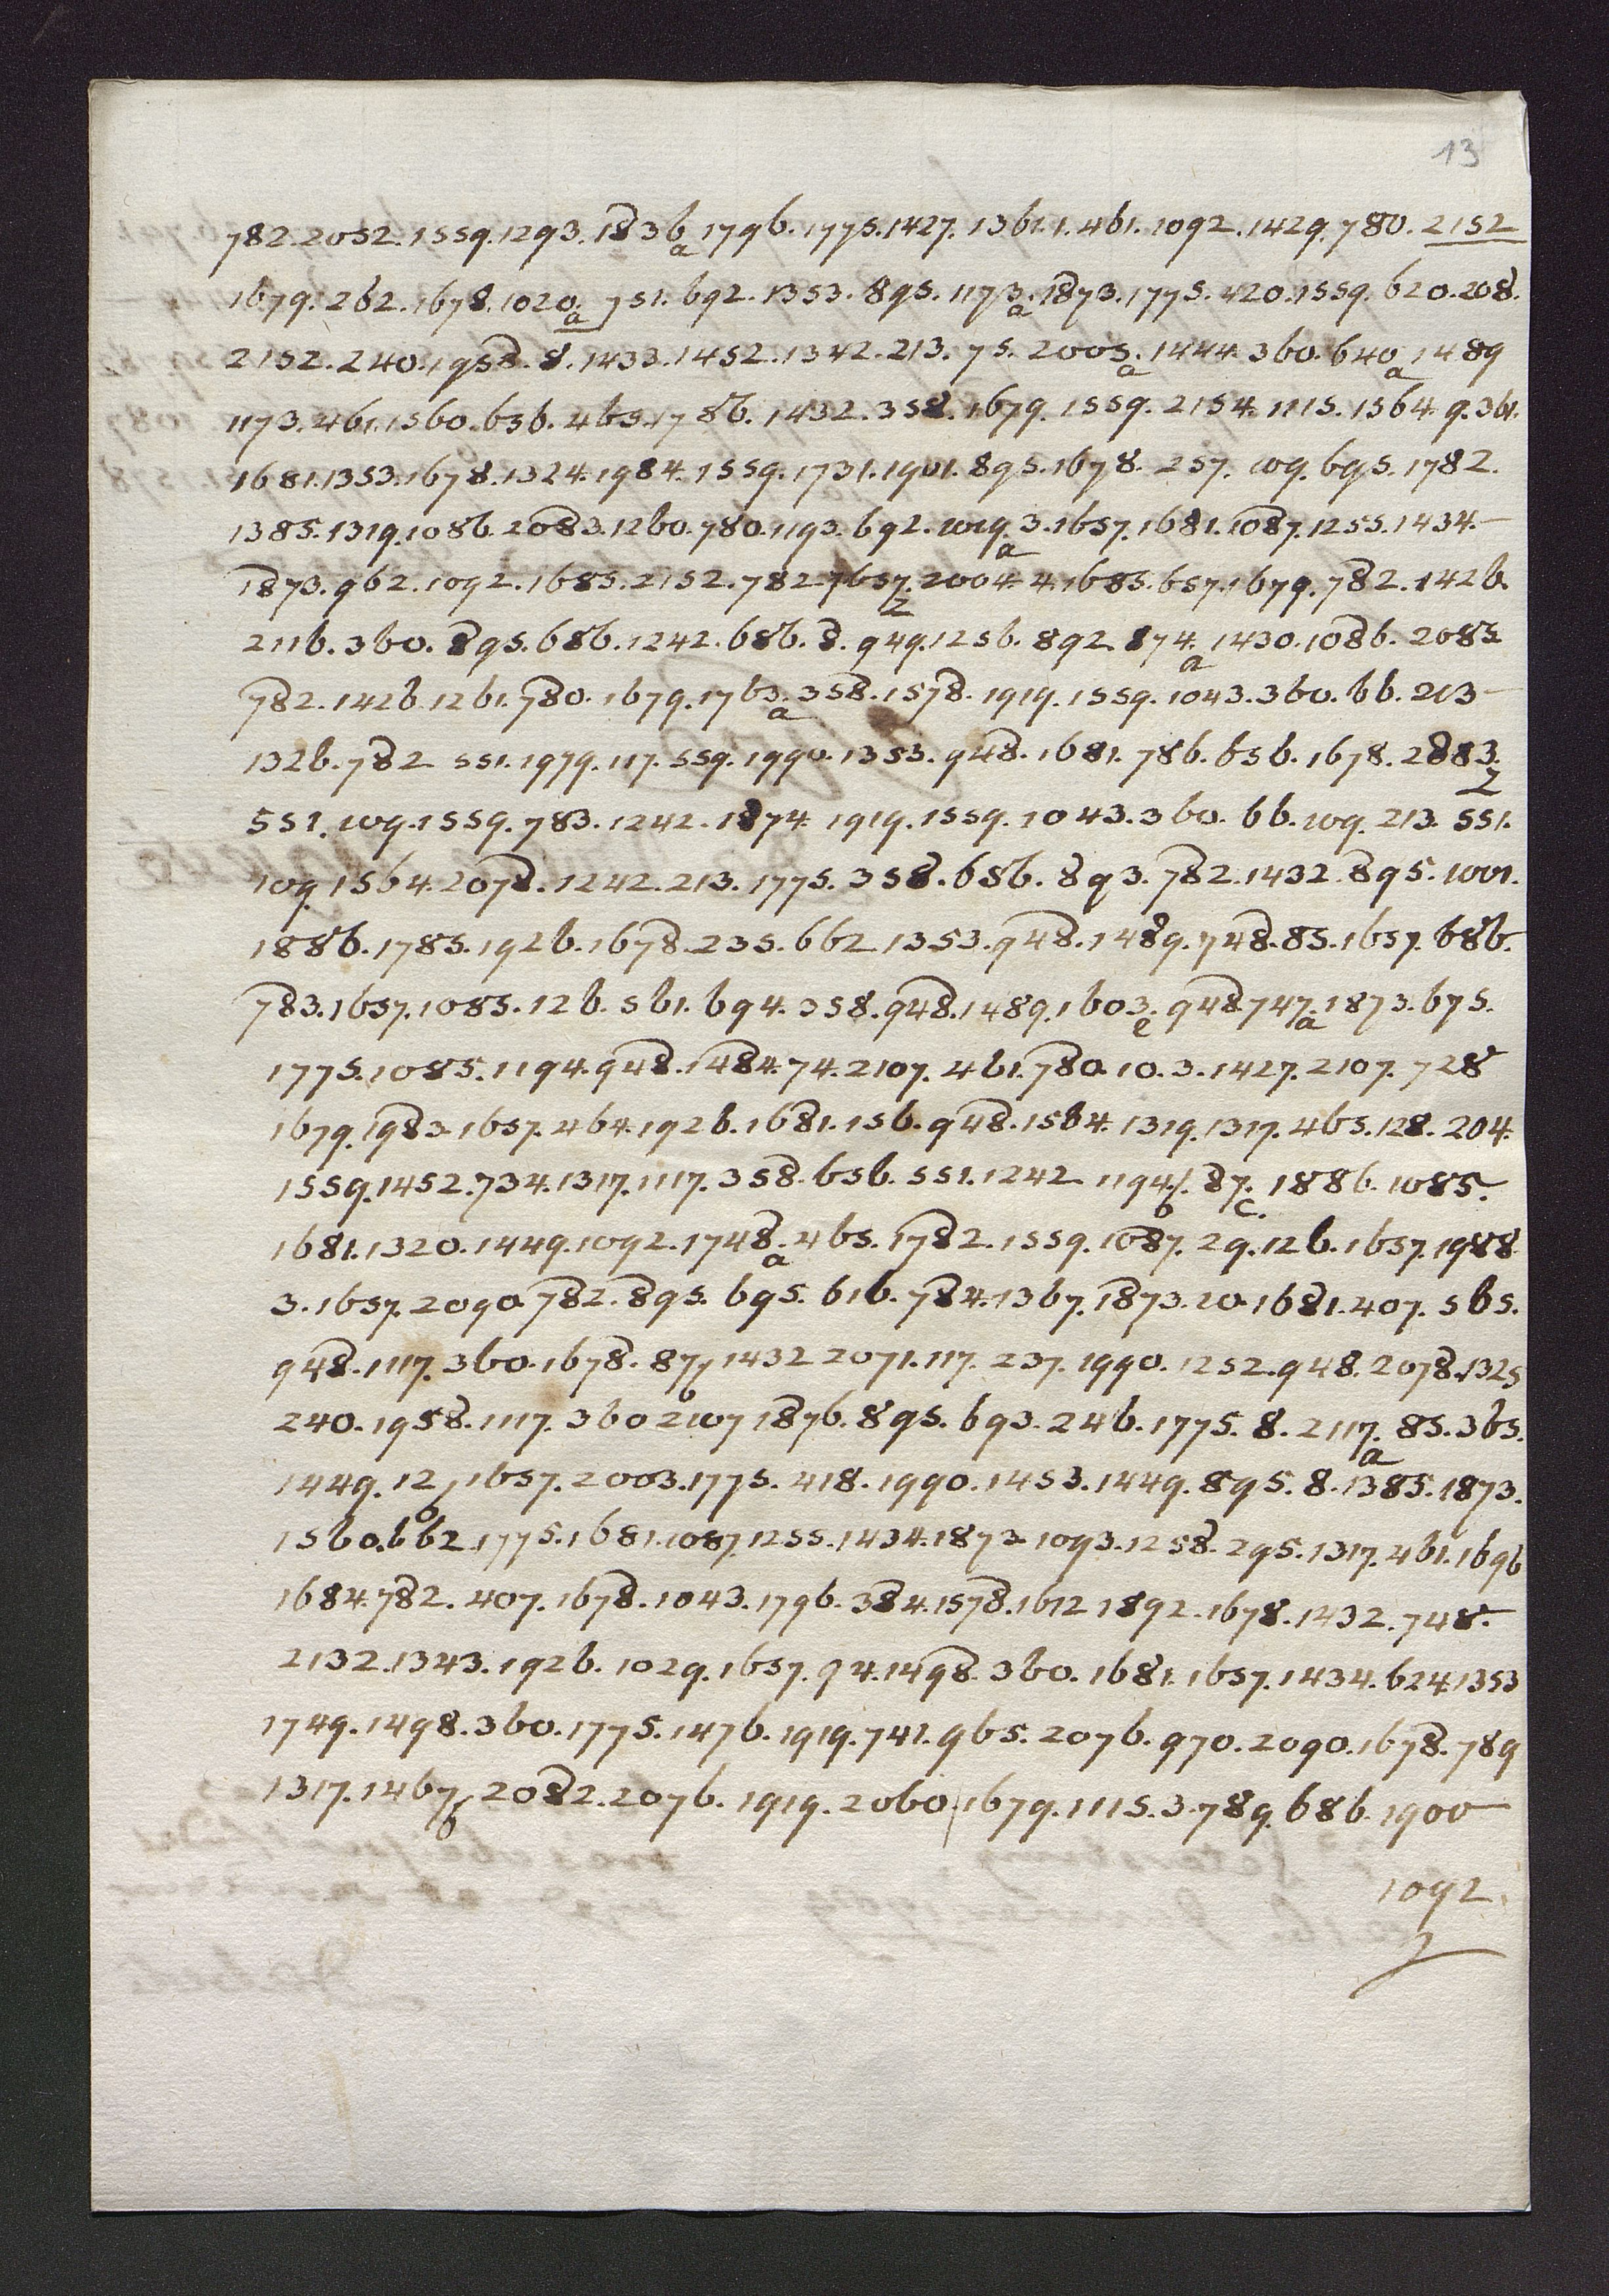 13
782. 2052. 1559. 1293. 1836.a 1796. 1775. 1427. 1361. 1. 461. 1092. 1429. 780. 2152
1679. 262. 1678. 1020.a 751. 692. 1353. 895. 1173.a 1873. 1775. 420. 1559. 620. 208.
2152. 240. 1958. 8. 1433. 1452. 1342. 213. 75. 2005.a 1444. 360. 640.a 1489
1173. 461. 1560. 656. 465. 1786. 1432. 358. 1679. 1559. 2154. 1115. 1564. 9. 361.
1681. 1353. 1678. 1324. 1984. 1559. 1731. 1901. 895. 1678. 257. 109. 695. 1782.
1385. 1319. 1086. 2083. 1260. 780. 1193. 692. 1019.a 3. 1657. 1681. 1087. 1255. 1434.
1873. 962. 1092. 1685. 2152. 782 1657.z 2004. 4. 1685. 657. 1679. 782. 1426.
2116. 360. 895. 686. 1242. 686. 8. 949. 1256. 892. 874.a 1430. 1086. 2083
782. 1426. 1261. 780. 1679. 1763.a 358. 1578. 1919. 1559. 1043. 360. 66. 213
1326. 782 551. 1979. 117. 559. 1990. 1353. 948. 1681. 786. 656. 1678. 2883.z
551. 109. 1559. 783. 1242. 1874. 1919. 1559. 1043. 360. 66. 109. 213. 551.
109. 1564. 2078. 1242. 213. 1775. 358. 686. 893. 782. 1432. 895. 1001.
1886. 1785. 1926. 1678. 235. 662 1353. 948. 1489. 748. 85. 1657. 686.
783. 1657. 1085. 126. 561. 694. 358. 948. 1489. 1603.e 948. 747.a 1873. 675.
1775. 1085. 1194. 948. 1484. 74. 2107. 461. 780. 10. 3. 1427. 2107. 728
1679. 1983. 1657. 464. 1926. 1681. 156. 948. 1584. 1319. 1317. 465. 128. 204.
1559. 1452. 734. 1317. 1117. 358. 656. 551. 1242 1194.b 87.c 1886. 1085.
1681. 1320. 1449. 1092. 1748.a 465. 1782. 1559. 1087. 29. 126. 1657. 1988
3. 1657. 2090. 782. 895. 695. 616. 784. 1367. 1873. 20. 1681. 407. 565.
948. 1117. 360. 1678. 877b 1432 2071. 117. 237. 1990. 1252. 948. 2078. 1325
240. 1958. 1117. 360 2107 1876. 895. 693. 246. 1775. 8. 2117.a 85. 365.
1449. 12b 1657. 2003. 1775. 418. 1990. 1453. 1449. 895. 8. 1385. 1873.
1560. 662. 1775. 1681. 1087. 1255. 1434. 1873. 1093. 1258. 295. 1317. 461. 1696
1684. 782. 407. 1678. 1043. 1796. 384. 1578. 1612 1892. 1678. 1432. 748.
2132. 1343. 1926. 1029. 1657. 94. 1498. 360. 1681. 1657. 1434. 624. 1353
1749. 1498. 360. 1775. 1476. 1919. 741. 965. 2076. 970. 2090. 1678. 789
1317. 1467b 2082. 2076. 1919. 2060. 1679. 1115. 3. 789. 686. 1900
1092.